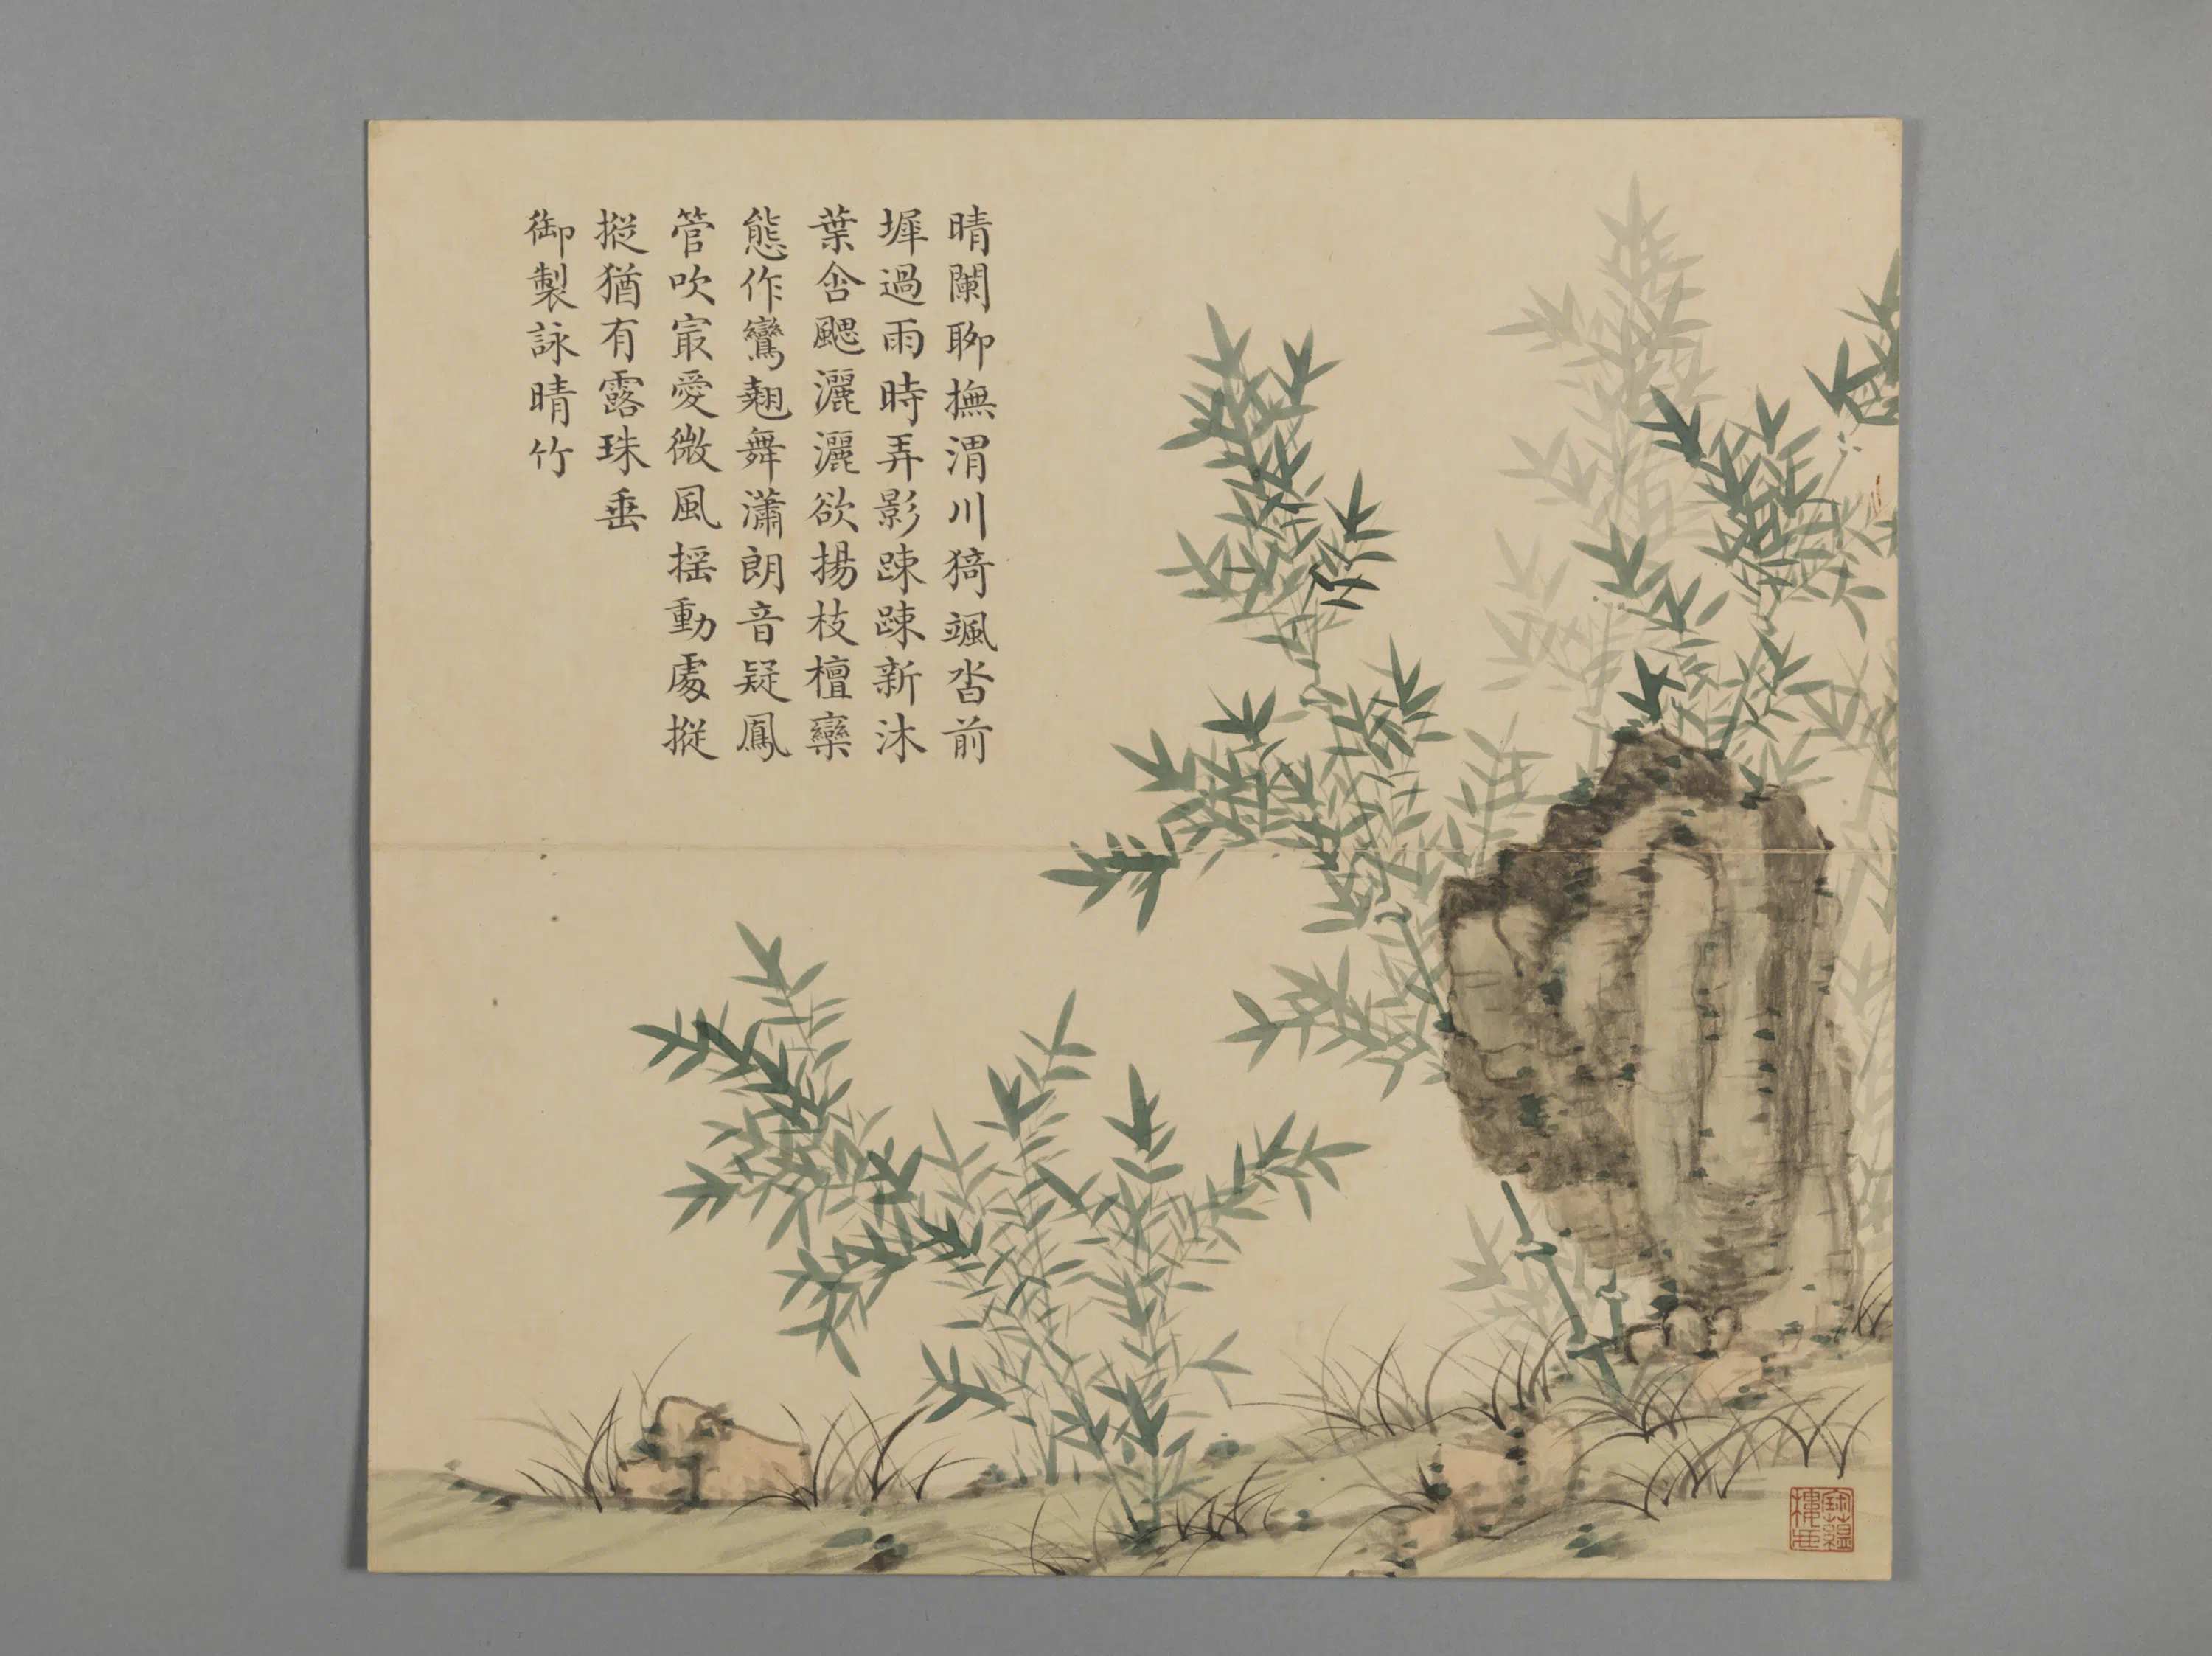 晴闌聊撫渭川猗颯沓前
墀過雨時弄影踈踈新沐
葉含颸灑灑欲揚枝檀欒
態作鸞翹舞瀟朗音疑鳳
管吹㝡愛微風揺動處摐
摐猶有露珠垂
御製詠晴竹